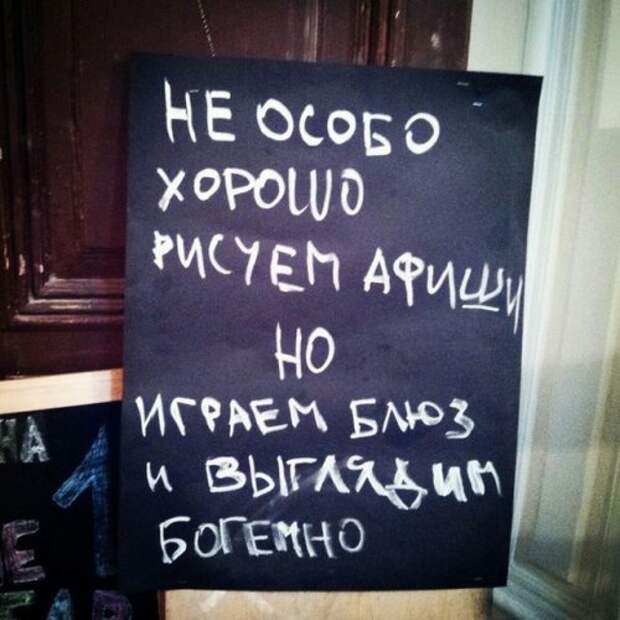 НЕ ОСОБО
ХОРОШО
РИСУЕМ АФИШИ
НО
ИГРАЕМ БЛЮЗ
И ВЫГЛЯДИМ
БОГЕМНО
НА 1